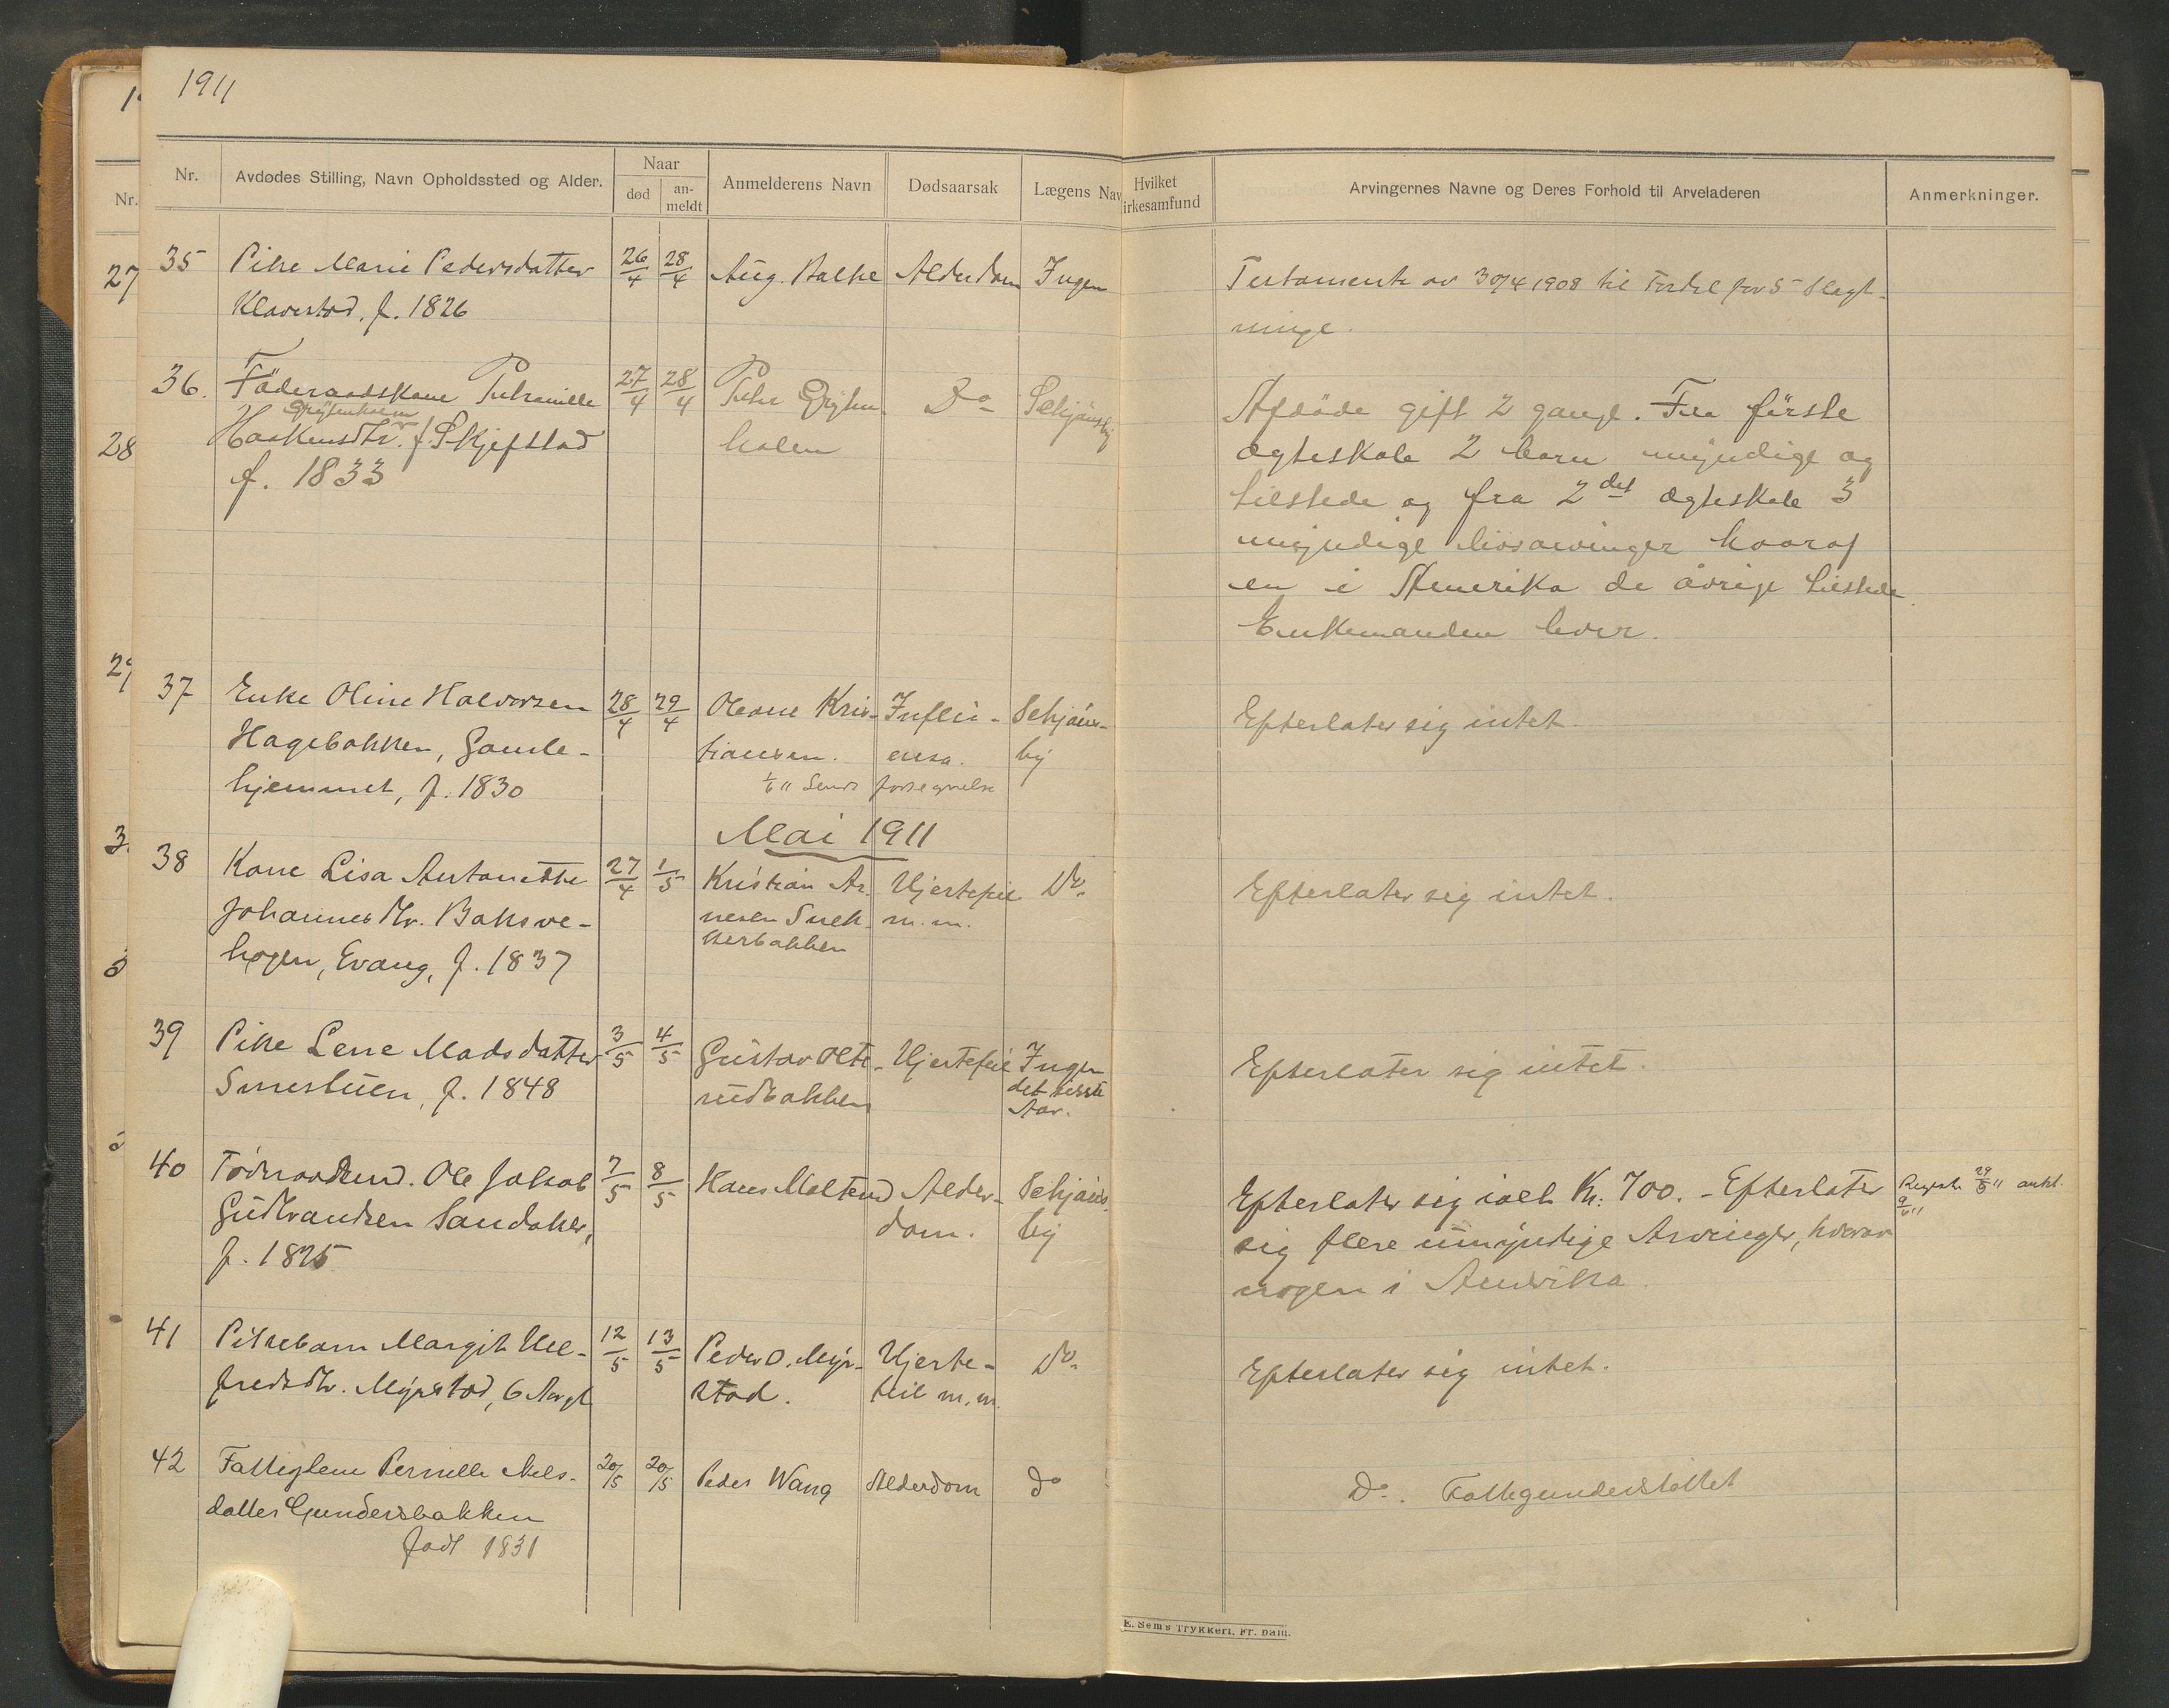 1911
Nr.
Avdødes Stilling, Navn Opholdssted og Alder.
Naar
død
an-
meldt
Anmelderens Navn
Dødsaarsak
Lægens Nav
Hvilket
irkesamfund
Arvingernes Navne og Deres Forhold til Arveladeren
Anmerkninger.
Nr.
27
28
35
Pike Marie Pedersdatter
Klavestad, f. 1826
26/4
28/4
Aug. Balke
Alderdom
Ingen
Testamente av 30/4 1908 til Fordel for 5 Slegt-
ninge.
36.
Föderaadskone Pehrnille
Grÿtenholen
Haakensdtr. f. Skjefstad
f. 1833
27/4
28/4
Pehr Grÿten
holen
Do
Schjänsby
Afdöde gift 2 gange. Fra förste
ægteskab 2 barn myndige og
tilstede og fra 2det ægteskab 3
myndige livsarvinger hvoraf
en i Amerika de övrige tilstede
Enkemanden lever.
37
Enke Oline Halvorsen
Hagebakken, Gamle-
hjemmet, f. 1830
28/4
29/4
Oleane Kris-
tiansen.
Influ-
ensa.
Schjäns-
by
1/6 11 Sendt fortegnelse
Efterlater sig intet.
Mai 1911
38
Kone Lisa Antonette
Johannesdtr. Baksve-
hogen, Evang, f. 1837
27/4
1/5
Kristian Ar-
nesen Snek-
kerbakken
Hjertefeil
m.m.
Do.
Efterlater sig intet.
39
Pike Lene Madsdatter
Smestuen, f. 1848
3/5
4/5
Gustav Olte-
rudbakken
Hjertefeil
Ingen
det sisste
Aar.
Efterlater sig intet.
40
Føderaadsmd. Ole Jakob
Gudbrandsen Sandaker,
f. 1825
7/5
8/5
Hans Meltend
Alder-
dom.
Schjäns-
by
Efterlater sig ialt Kr. 700. - Efterlater
sig flere umyndige Arvinger, hvorav
nogen i Amerika.
41
Pikebarn Margit Hel-
fredsdtr. Myrstad, 6 Aar gl
12/5
13/5
Peder O. Myr-
stad.
Hjerte-
feil m.m.
Do.
Efterlater sig intet.
42
Fattiglem Pernille Nels-
datter Gundersbakken
født 1831
20/5
20/5
Peder Wang
Alderdom
do
Do. Fattigunderstøttet
E. Sem's Trykkeri, Fr. hald.